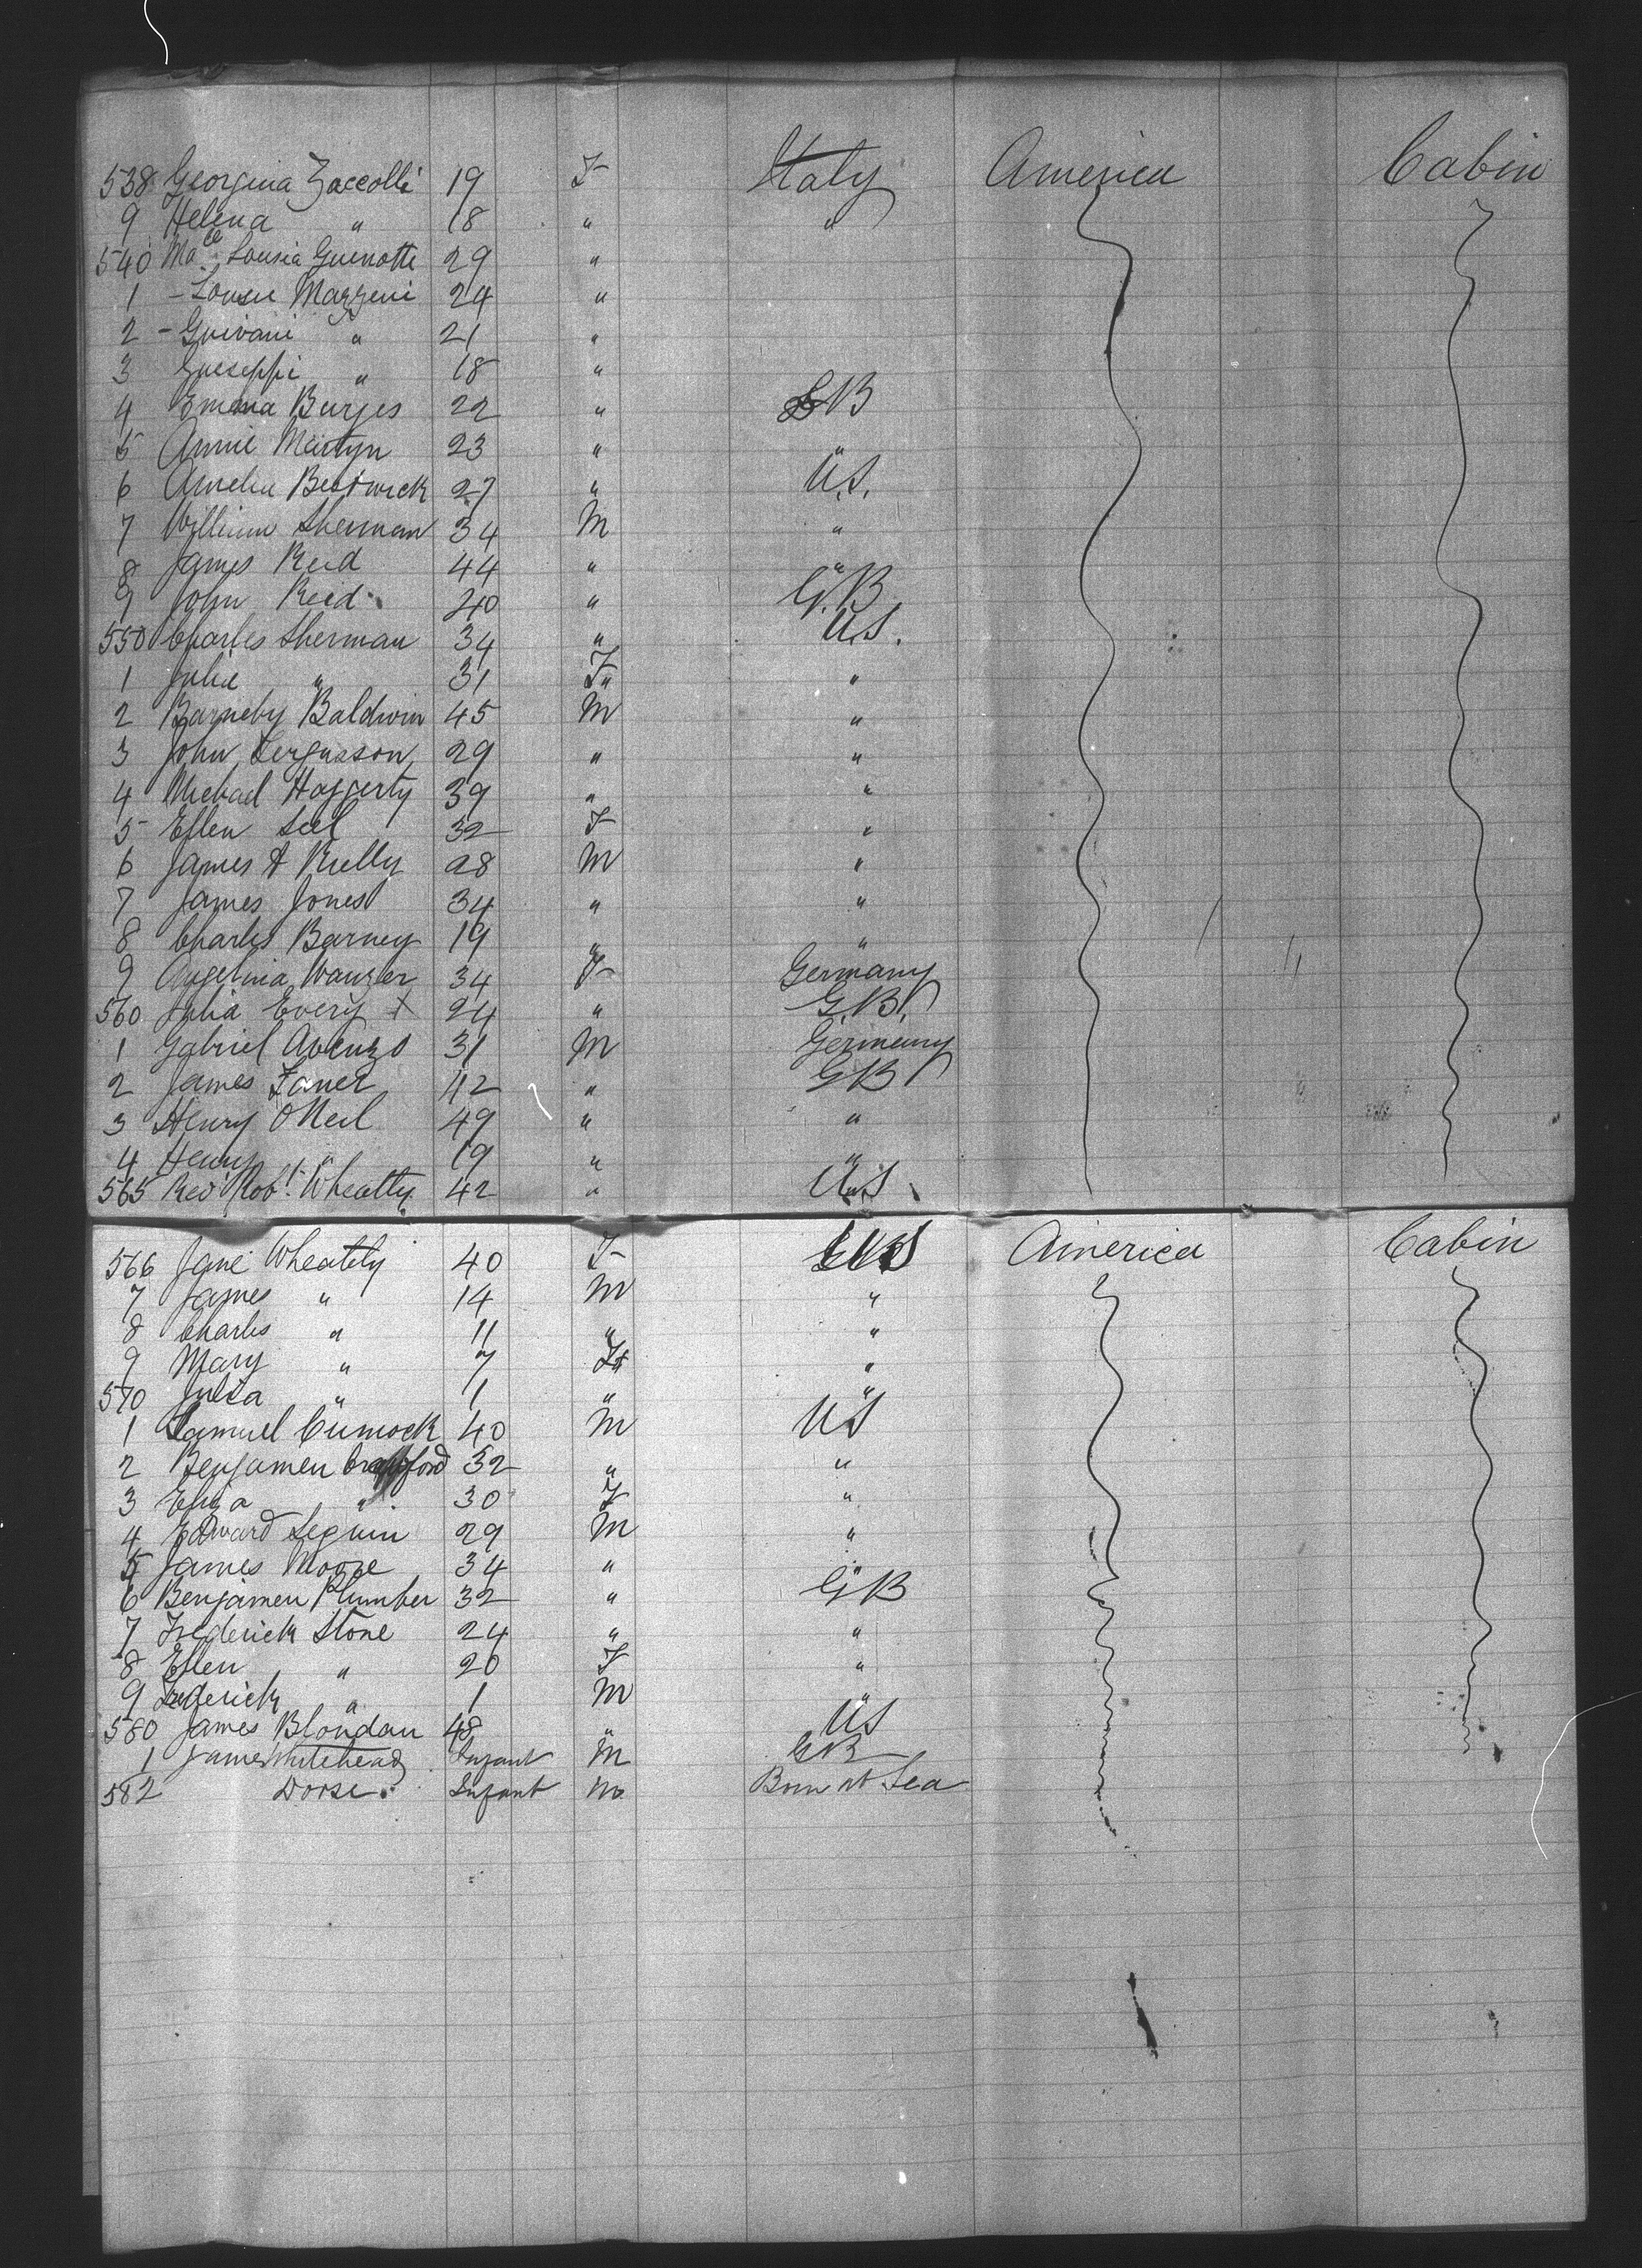 538 Georgina Zaccolli 19 F Italy America Cabin
9 Helena " 18 " "
540 Lousia Guenotti 29 "
1 - Louise Mazzeni 24 "
2 - Guivani " 21 "
3 Gueseppi " 18 "
4 Emma Burges 22 " GB
5 Annie Martyn 23 " "
6 Amelia Bestwick 27 " U.S.
7 William Sherman 34 M "
8 James Reid 44 " "
9 John Reid 40 " G.B
550 Charles Sherman 34 " U.S.
1 Julia " 31 F "
2 Barneby Baldwin 45 M "
3 John Fergusson 29 " "
4 Michael Haggerty 39 " "
5 Ellen Seel 32 F "
6 James A Kelly 28 M "
7 James Jones 34 " "
8 Charles Barney 19 " "
9 Angelina Wanzer 34 F Germany
560 Julia Every + 24 " G.B.
1 Gabriel Avenzo 31 M Germany
2 James Faner 42 " GB
3 Henry ONeil 49 " "
4 Henry " 19 " "
565 Rev Robt. Wheatly 42 " U.S.
566 Jane Wheatly 40 F America Cabin
7 James " 14 M "
8 Charles " 11 " "
9 Mary " 7 F "
570 Julia " 1 " "
1 Samuel Cumock 40 M US
2 Benjamen Crawford 32 " "
3 Eliza " 30 F "
4 Edward Seguin 29 M "
5 James Moore 34 " "
6 Benjamen Plumber 32 " G B
7 Frederick Stone 24 " "
8 Ellen " 20 F "
9 Frederick " 1 M "
580 James Blondau 48 " US
1 James Whitehead Infant M GB
582 Dorse. Infant M Born at Sea